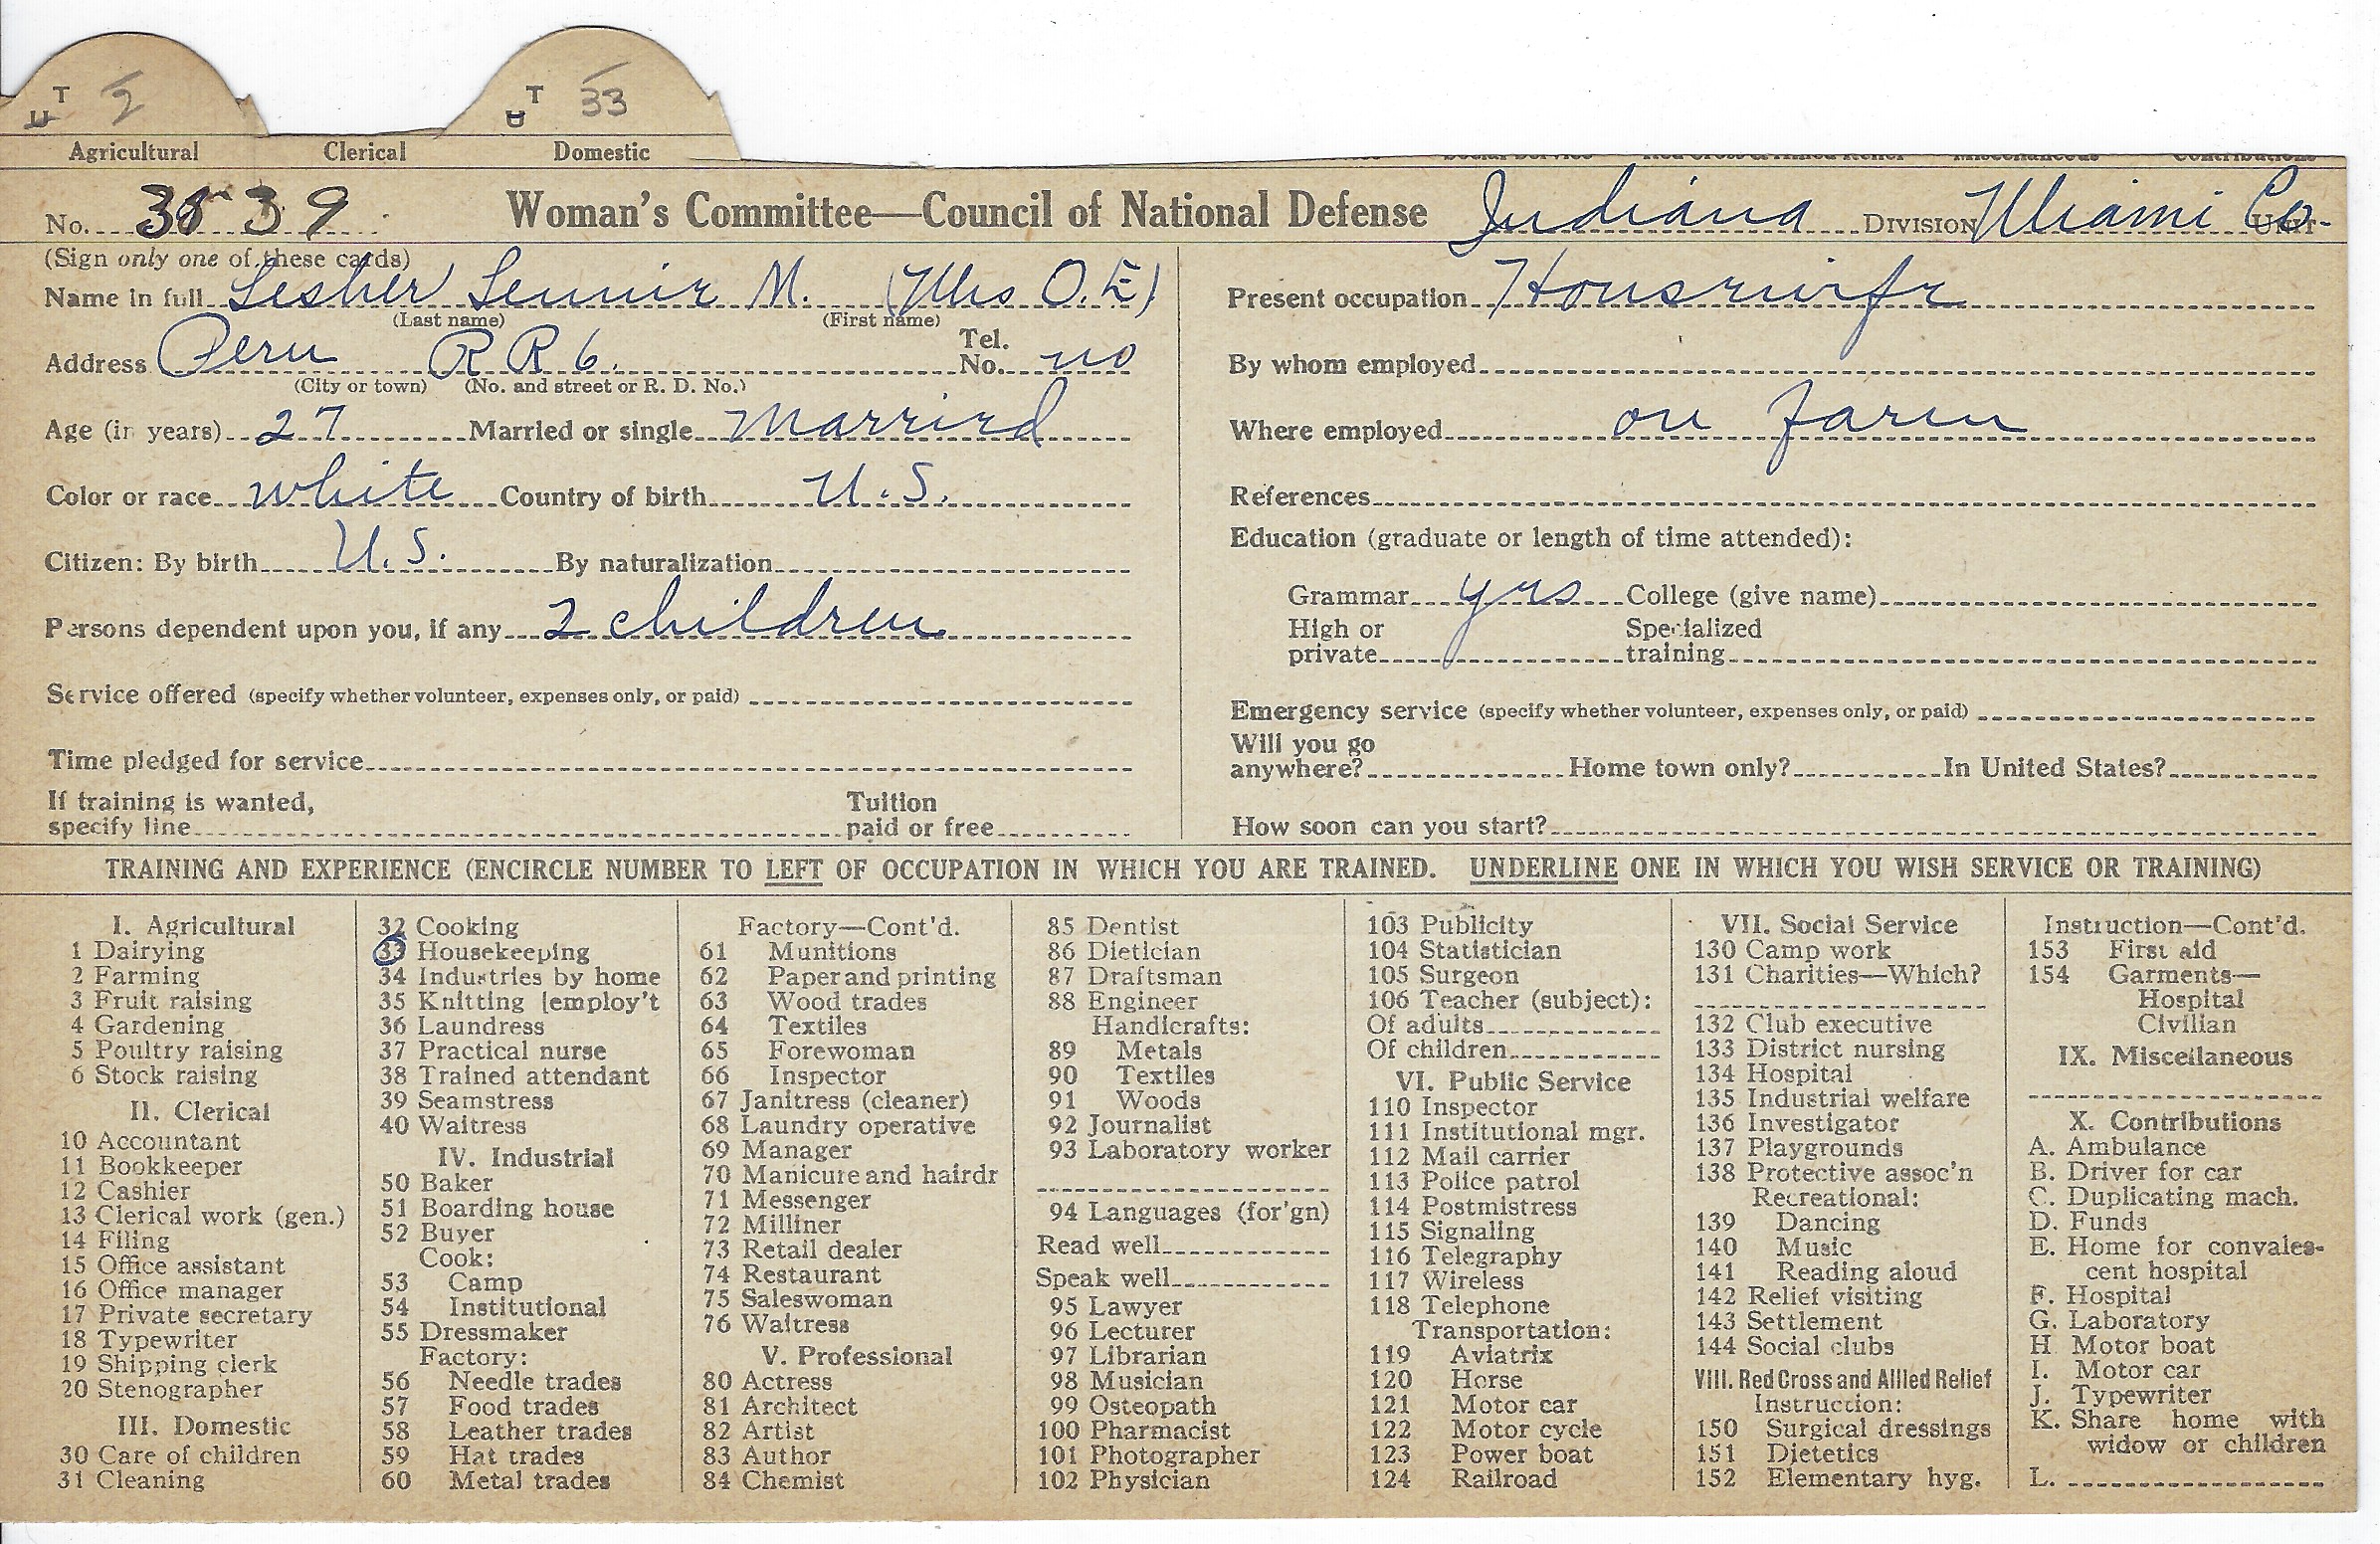 T 2 T 33
U U
Agricultural Clerical Domestic
No. 3539 Woman's Committee—Council of National Defense Indiana DIVISION Miami Co. UNIT
(Sign only one of these cards)
Name in full Lesher Lennie M. (Mrs O. E)
(Last name) (First name)
Address Peru R R 6. Tel. No. no
(City or town) (No. and street or R. D. No.)
Age (in years) 27 Married or single married
Color or race white Country of birth U.S.
Citizen: By birth U.S. By naturalization
Persons dependent upon you, if any 2 children
Service offered (specify whether volunteer, expenses only, or paid)
Time pledged for service
If training is wanted,
specify line Tuition paid or free
Present occupation Housewife
By whom employed
Where employed on farm
References
Education (graduate or length of time attended):
Grammar yes College (give name)
High or private Specialized training
Emergency service (specify whether volunteer, expenses only, or paid)
Will you go
anywhere? Home town only? In United States?
How soon can you start?
TRAINING AND EXPERIENCE (ENCIRCLE NUMBER TO LEFT OF OCCUPATION IN WHICH YOU ARE TRAINED. UNDERLINE ONE IN WHICH YOU WISH SERVICE OR TRAINING)
I. Agricultural
1 Dairying
2 Farming
3 Fruit raising
4 Gardening
5 Poultry raising
6 Stock raising
II. Clerical
10 Accountant
11 Bookkeeper
12 Cashier
13 Clerical work (gen.)
14 Filing
15 Office assistant
16 Office manager
17 Private secretary
18 Typewriter
19 Shipping clerk
20 Stenographer
III. Domestic
30 Care of children
31 Cleaning
32 Cooking
33 Housekeeping
34 Industries by home
35 Knitting [employ't
36 Laundress
37 Practical nurse
38 Trained attendant
39 Seamstress
40 Waitress
IV. Industrial
50 Baker
51 Boarding house
52 Buyer
Cook:
53 Camp
54 Institutional
55 Dressmaker
Factory:
56 Needle trades
57 Food trades
58 Leather trades
59 Hat trades
60 Metal trades
Factory—Cont'd.
61 Munitions
62 Paper and printing
63 Wood trades
64 Textiles
65 Forewoman
66 Inspector
67 Janitress (cleaner)
68 Laundry operative
69 Manager
70 Manicure and hairdr
71 Messenger
72 Milliner
73 Retail dealer
74 Restaurant
75 Saleswoman
76 Waitress
V. Professional
80 Actress
81 Architect
82 Artist
83 Author
84 Chemist
85 Dentist
86 Dietician
87 Draftsman
88 Engineer
Handicrafts:
89 Metals
90 Textiles
91 Woods
92 Journalist
93 Laboratory worker
94 Languages (for'gn)
Read well
Speak well
95 Lawyer
96 Lecturer
97 Librarian
98 Musician
99 Osteopath
100 Pharmacist
101 Photographer
102 Physician
103 Publicity
104 Statistician
105 Surgeon
106 Teacher (subject):
Of adults
Of children
VI. Public Service
110 Inspector
111 Institutional mgr.
112 Mail carrier
113 Police patrol
114 Postmistress
115 Signaling
116 Telegraphy
117 Wireless
118 Telephone
Transportation:
119 Aviatrix
120 Horse
121 Motor car
122 Motor cycle
123 Power boat
124 Railroad
VII. Social Service
130 Camp work
131 Charities—Which?
132 Club executive
133 District nursing
134 Hospital
135 Industrial welfare
136 Investigator
137 Playgrounds
138 Protective assoc'n
Recreational:
139 Dancing
140 Music
141 Reading aloud
142 Relief visiting
143 Settlement
144 Social clubs
VIII. Red Cross and Allied Relief
Instruction:
150 Surgical dressings
151 Dietetics
152 Elementary hyg.
Instruction—Cont'd.
153 First aid
154 Garments—
Hospital
Civilian
IX. Miscellaneous
X. Contributions
A. Ambulance
B. Driver for car
C. Duplicating mach.
D. Funds
E. Home for convales-
cent hospital
F. Hospital
G. Laboratory
H Motor boat
I. Motor car
J. Typewriter
K. Share home with
widow or children
L.